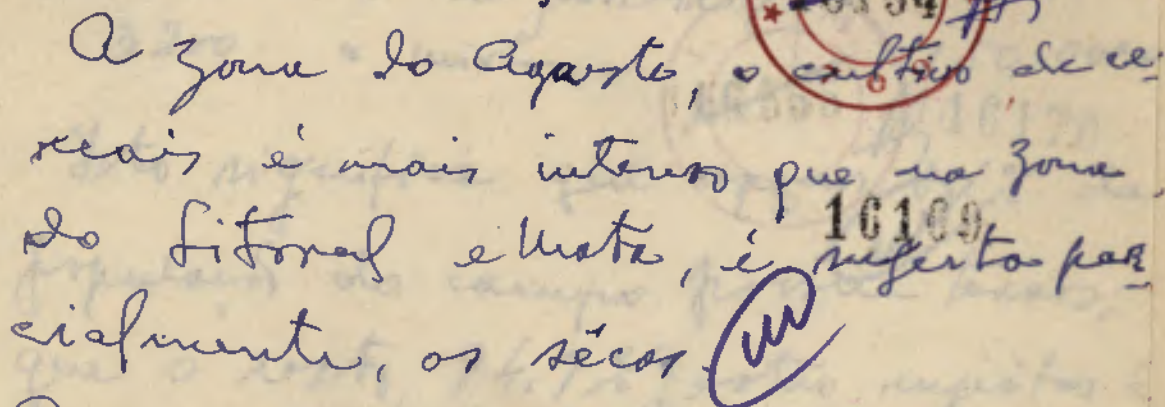 A zona do Agreste, o cultivo de ce-
reais é mais intenso que na zona
do Litoral e Mata, é sujeita par-
16169
cialmente, as sêcas.